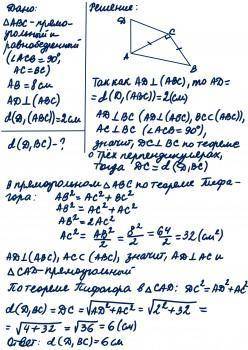 Дано:
ΔABC - прямо-
угольный и
равнобедренный
(∠ACB = 90°,
AC = BC)
AB = 8 см
AD ⊥ (ABC)
d(D,(ABC)) = 2 см
d(D, BC) - ?
Решение:
D
A
C
B
Так как AD ⊥ (ABC), то AD =
= d(D,(ABC)) = 2 (см)
AD ⊥ BC (AD ⊥ (ABC), BC ⊂ (ABC),
AC ⊥ BC (∠ACB = 90°),
значит, DC ⊥ BC по теореме
о трех перпендикулярах,
тогда DC = d(D, BC)
В прямоугольном ΔABC по теореме Пифа-
гора: AB² = AC² + BC²
AB² = AC² + AC²
AB² = 2AC²
AC² = AB²/2 = 8²/2 = 64/2 = 32 (см²)
AD ⊥ (ABC), AC ⊂ (ABC), значит, AD ⊥ AC и
ΔCAD - прямоугольный
По теореме Пифагора в ΔCAD: DC² = AD² + AC²
d(D, BC) = DC = √AD² + AC² = √2² + 32 =
= √4 + 32 = √36 = 6 (см)
Ответ: d(D, BC) = 6 см